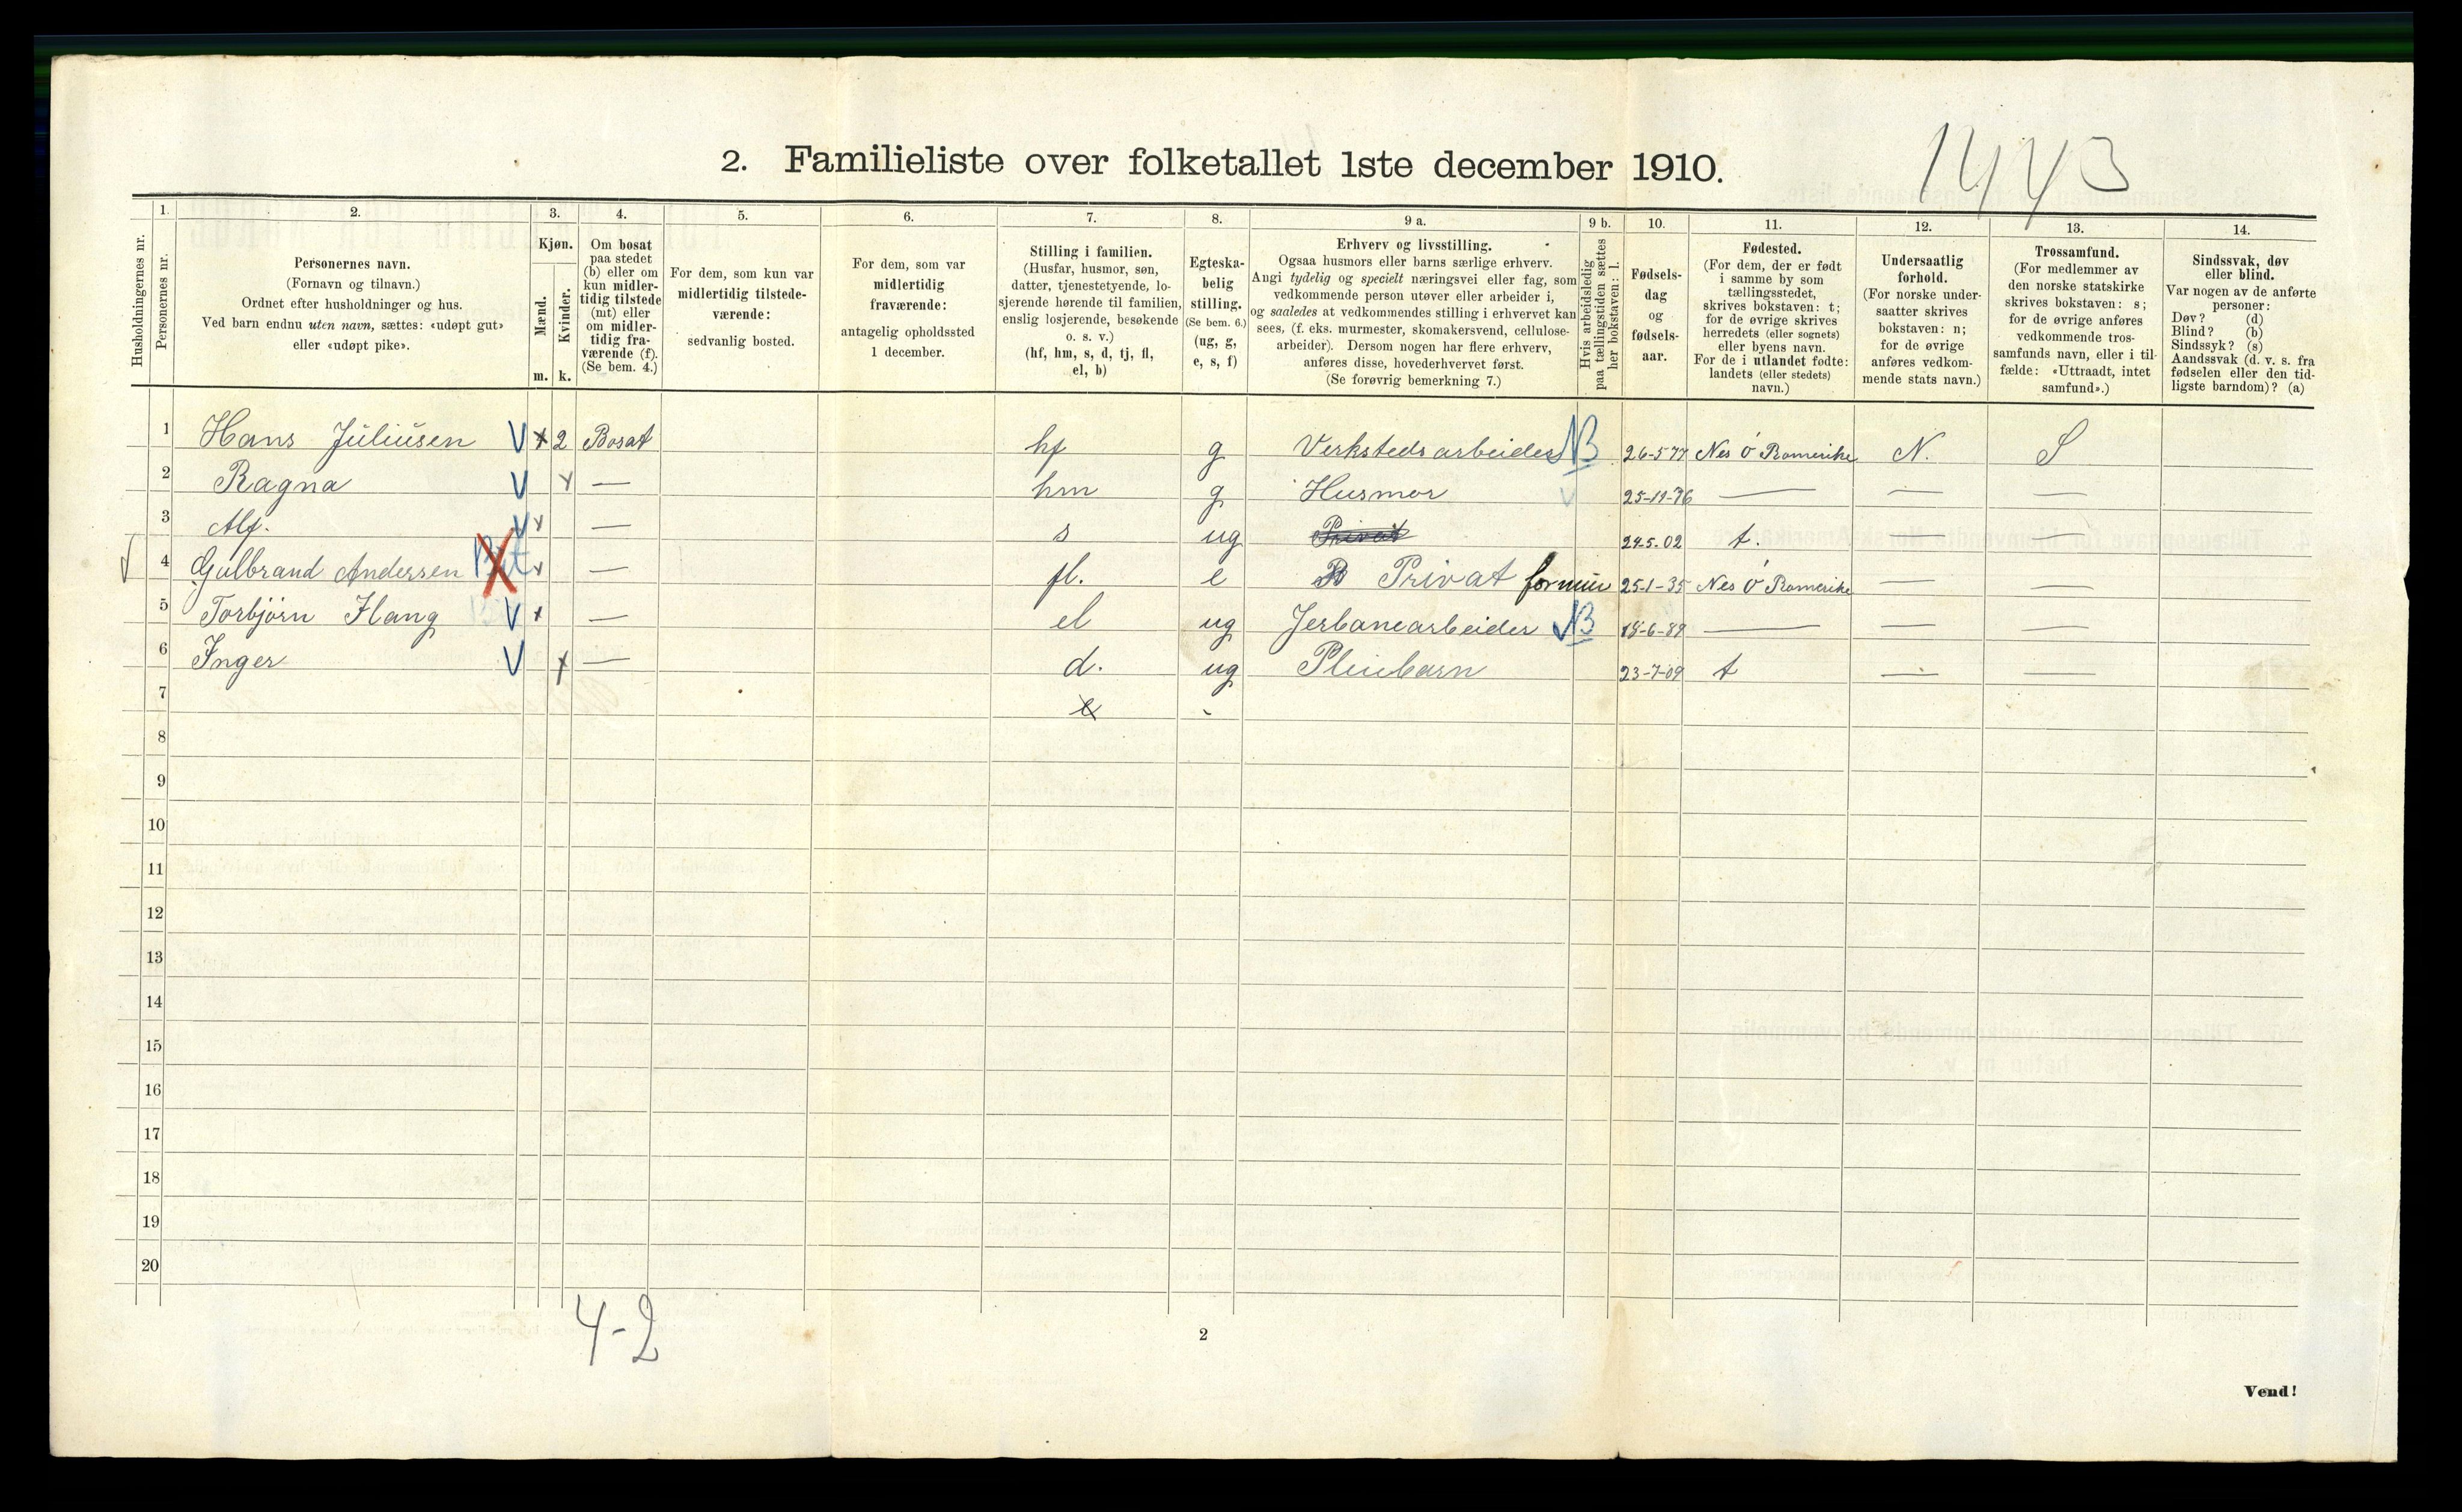 1443
2. Familieliste over folketallet 1ste december 1910.
1. 2. 3. 4. 5. 6. 7. 8. 9 a. 9 b. 10. 11. 12. 13. 14.
Husholdningernes nr.
Personernes nr.
Personernes navn.
(Fornavn og tilnavn.)
Ordnet efter husholdninger og hus.
Ved barn endnu uten navn, sættes: «udøpt gut»
eller «udøpt pike».
Kjøn.
Mænd.
Kvinder.
m. k.
Om bosat
paa stedet
(b) eller om
kun midler-
tidig tilstede
(mt) eller
om midler-
tidig fra-
værende (f).
(Se bem. 4.)
For dem, som kun var
midlertidig tilstede-
værende:
sedvanlig bosted.
For dem, som var
midlertidig
fraværende:
antagelig opholdssted
1 december.
Stilling i familien.
(Husfar, husmor, søn,
datter, tjenestetyende, lo-
sjerende hørende til familien,
enslig losjerende, besøkende
o. s. v.)
(hf, hm, s, d, tj, fl,
el, b)
Egteska-
belig
stilling.
(Se bem. 6.)
(ug, g,
e, s, f)
Erhverv og livsstilling.
Ogsaa husmors eller barns særlige erhverv.
Angi tydelig og specielt næringsvei eller fag, som
vedkommende person utøver eller arbeider i,
og saaledes at vedkommendes stilling i erhvervet kan
sees, (f. eks. murmester, skomakersvend, cellulose-
arbeider). Dersom nogen har flere erhverv,
anføres disse, hovederhvervet først.
(Se forøvrig bemerkning 7.)
Hvis arbeidsledig
paa tællingstiden sættes
her bokstaven: l.
Fødsels-
dag
og
fødsels-
aar.
Fødested.
(For dem, der er født
i samme by som
tællingsstedet,
skrives bokstaven: t;
for de øvrige skrives
herredets (eller sognets)
eller byens navn.
For de i utlandet fødte:
landets (eller stedets)
navn.)
Undersaatlig
forhold.
(For norske under-
saatter skrives
bokstaven: n;
for de øvrige
anføres vedkom-
mende stats navn.)
Trossamfund.
(For medlemmer av
den norske statskirke
skrives bokstaven: s;
for de øvrige anføres
vedkommende tros-
samfunds navn, eller i til-
fælde: «Uttraadt, intet
samfund».)
Sindssvak, døv
eller blind.
Var nogen av de anførte
personer:
Døv? (d)
Blind? (b)
Sindssyk? (s)
Aandssvak (d. v. s. fra
fødselen eller den tid-
ligste barndom)? (a)
1 Hans Juliusen V x 2 Bosat hf g Verkstedsarbeider NB 26-5-77 Nes Ó Romerike N. S
2 Ragna V x — hm g Husmor V 25-11-76 — — —
3 Alf. V x — s ug Privat 24-5.02 t.
4 Gulbrand Andersen x — fl. e Privat formue 25-1-35 Nes Ó Romerike — —
5 Torbjørn Haug V x — el ug Jerbanearbeider NB 18-6-89 — — —
6 Inger V x — d. ug Pleiebarn 23-7-09 t — —
7
8
9
10
11
12
13
14
15
16
17
18
19
20
4-2
2
Vend!